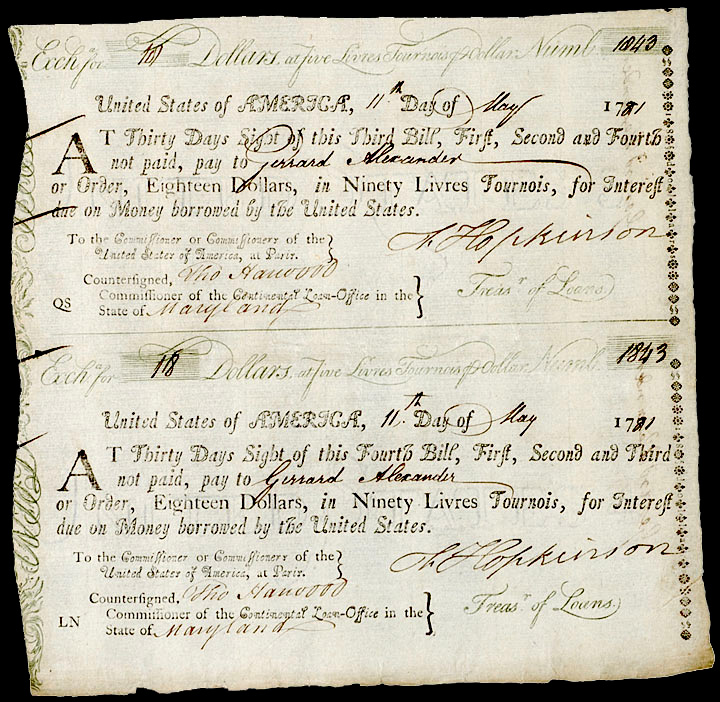 Exchᵃ for 18 Dollars, at five Livres Tournois ⅌ Dollar. Numb. 1843
United States of AMERICA, 11.th Day of May 1781
AT Thirty Days Sight of this Third Bill, First, Second and Fourth
not paid, pay to Gerrard Alexander
or Order, Eighteen Dollars, in Ninety Livres Tournois, for Interest
due on Money borrowed by the United States.
To the Commissioner or Commissioners of the
United States of America, at Paris.
F. Hopkinson
Countersigned, Tho Harwood
Treasʳ of Loans.
QS Commissioner of the Continental Loan-Office in the
State of Maryland
Exchᵃ for 18 Dollars, at five Livres Tournois ⅌ Dollar. Numb. 1843
United States of AMERICA, 11.th Day of May 1781
AT Thirty Days Sight of this Fourth Bill, First, Second and Third
not paid, pay to Gerrard Alexander
or Order, Eighteen Dollars, in Ninety Livres Tournois, for Interest
due on Money borrowed by the United States.
To the Commissioner or Commissioners of the
United States of America, at Paris.
F. Hopkinson
Countersigned, Tho Harwood
Treasʳ of Loans.
LN Commissioner of the Continental Loan-Office in the
State of Maryland